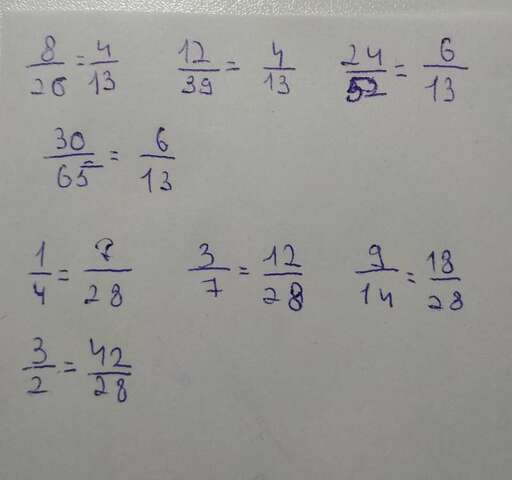 8/26 = 4/13 12/39 = 4/13 24/52 = 6/13
30/65 = 6/13
1/4 = 7/28 3/7 = 12/28 9/14 = 18/28
3/2 = 42/28